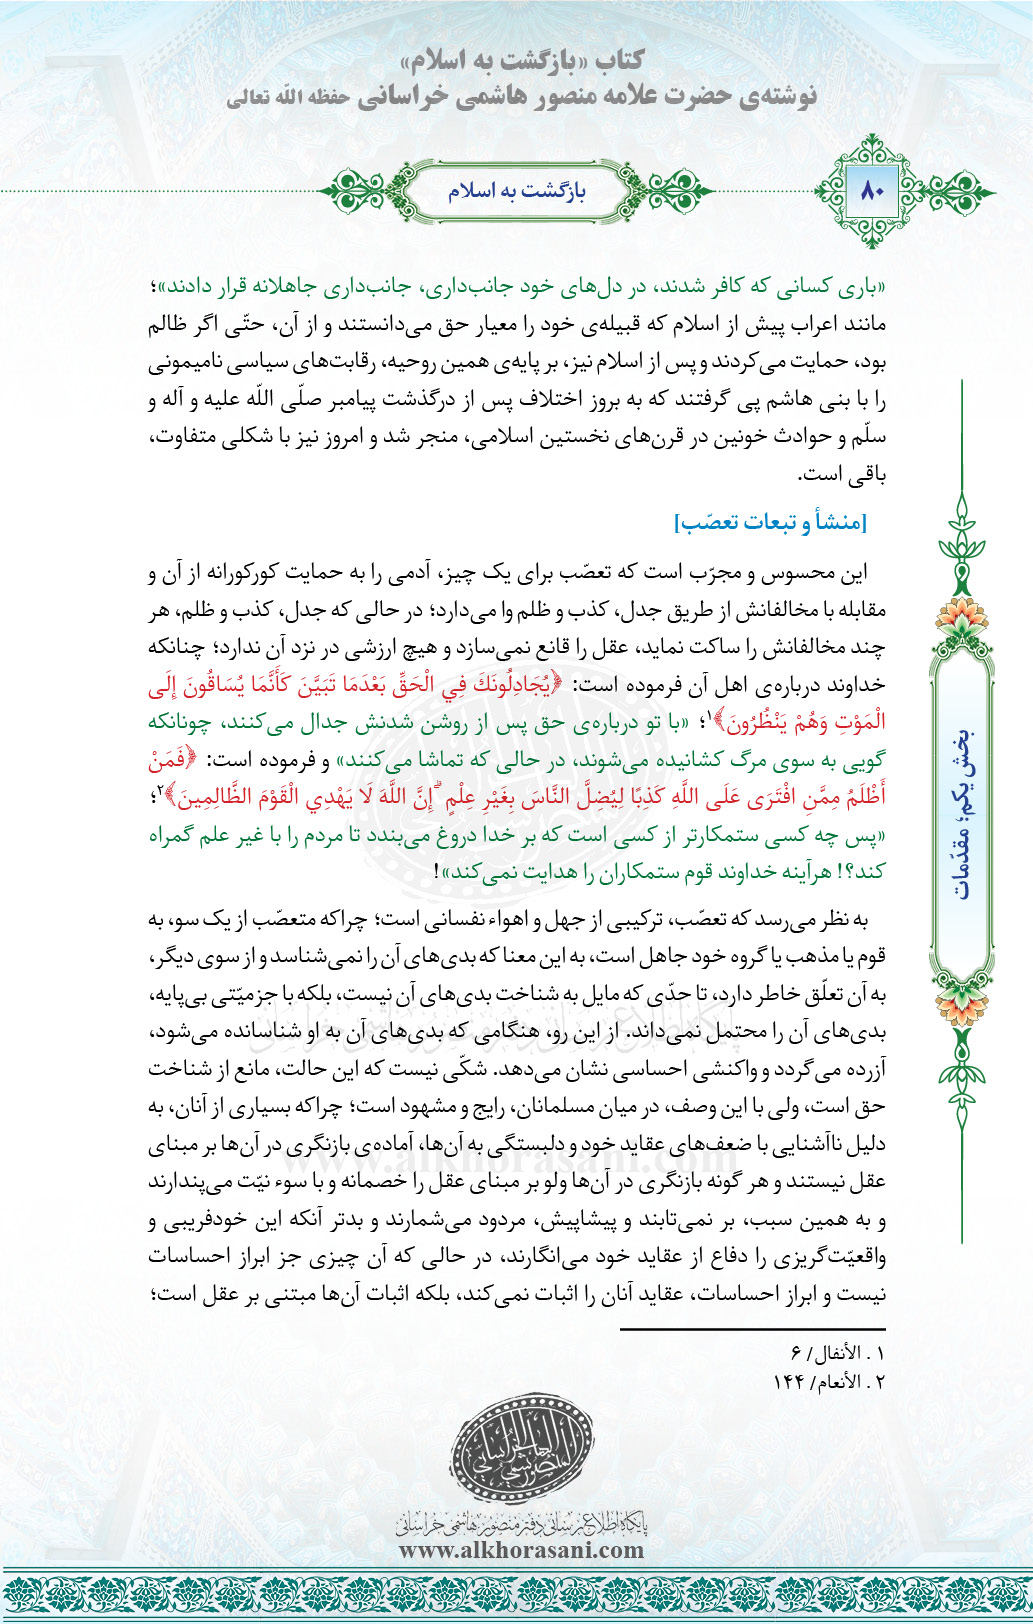 کتاب «بازگشت به اسلام»
نوشته‌ی حضرت علامه منصور هاشمی خراسانی حفظه الله تعالی
بازگشت به اسلام
۸۰
«باری کسانی که کافر شدند، در دل‌های خود جانب‌داری، جانب‌داری جاهلانه قرار دادند»؛
مانند اعراب پیش از اسلام که قبیله‌ی خود را معیار حق می‌دانستند و از آن، حتّی اگر ظالم
بود، حمایت می‌کردند و پس از اسلام نیز، بر پایه‌ی همین روحیه، رقابت‌های سیاسی نامیمونی
را با بنی هاشم پی گرفتند که به بروز اختلاف پس از درگذشت پیامبر صلّی اللّه علیه و آله و
سلّم و حوادث خونین در قرن‌های نخستین اسلامی، منجر شد و امروز نیز با شکلی متفاوت،
باقی است.
[منشأ و تبعات تعصّب]
این محسوس و مجرّب است که تعصّب برای یک چیز، آدمی را به حمایت کورکورانه از آن و
مقابله با مخالفانش از طریق جدل، کذب و ظلم وا می‌دارد؛ در حالی که جدل، کذب و ظلم، هر
چند مخالفانش را ساکت نماید، عقل را قانع نمی‌سازد و هیچ ارزشی در نزد آن ندارد؛ چنانکه
خداوند درباره‌ی اهل آن فرموده است: ﴿يُجَادِلُونَكَ فِي الْحَقِّ بَعْدَمَا تَبَيَّنَ كَأَنَّمَا يُسَاقُونَ إِلَى
الْمَوْتِ وَهُمْ يَنْظُرُونَ﴾۱؛ «با تو درباره‌ی حق پس از روشن شدنش جدال می‌کنند، چونانکه
گویی به سوی مرگ کشانیده می‌شوند، در حالی که تماشا می‌کنند» و فرموده است: ﴿فَمَنْ
أَظْلَمُ مِمَّنِ افْتَرَى عَلَى اللَّهِ كَذِبًا لِيُضِلَّ النَّاسَ بِغَيْرِ عِلْمٍ ۗ إِنَّ اللَّهَ لَا يَهْدِي الْقَوْمَ الظَّالِمِينَ﴾۲؛
«پس چه کسی ستمکارتر از کسی است که بر خدا دروغ می‌بندد تا مردم را با غیر علم گمراه
کند؟! هرآینه خداوند قوم ستمکاران را هدایت نمی‌کند»!
به نظر می‌رسد که تعصّب، ترکیبی از جهل و اهواء نفسانی است؛ چراکه متعصّب از یک سو، به
قوم یا مذهب یا گروه خود جاهل است، به این معنا که بدی‌های آن را نمی‌شناسد و از سوی دیگر،
به آن تعلّق خاطر دارد، تا حدّی که مایل به شناخت بدی‌های آن نیست، بلکه با جزمیّتی بی‌پایه،
بدی‌های آن را محتمل نمی‌داند. از این رو، هنگامی که بدی‌های آن به او شناسانده می‌شود،
آزرده می‌گردد و واکنشی احساسی نشان می‌دهد. شکّی نیست که این حالت، مانع از شناخت
حق است، ولی با این وصف، در میان مسلمانان، رایج و مشهود است؛ چراکه بسیاری از آنان، به
دلیل ناآشنایی با ضعف‌های عقاید خود و دلبستگی به آن‌ها، آماده‌ی بازنگری در آن‌ها بر مبنای
عقل نیستند و هر گونه بازنگری در آن‌ها ولو بر مبنای عقل را خصمانه و با سوء نیّت می‌پندارند
و به همین سبب، بر نمی‌تابند و پیشاپیش، مردود می‌شمارند و بدتر آنکه این خودفریبی و
واقعیّت‌گریزی را دفاع از عقاید خود می‌انگارند، در حالی که آن چیزی جز ابراز احساسات
نیست و ابراز احساسات، عقاید آنان را اثبات نمی‌کند، بلکه اثبات آن‌ها مبتنی بر عقل است؛
۱ . الأنفال/ ۶
۲ . الأنعام/ ۱۴۴
بخش یکم؛ مقدّمات
المنصور الهاشمي الخراساني
پایگاه اطلاع‌رسانی دفتر منصور هاشمی خراسانی
www.alkhorasani.com
پایگاه اطلاع‌رسانی دفتر منصور هاشمی خراسانی
www.alkhorasani.com